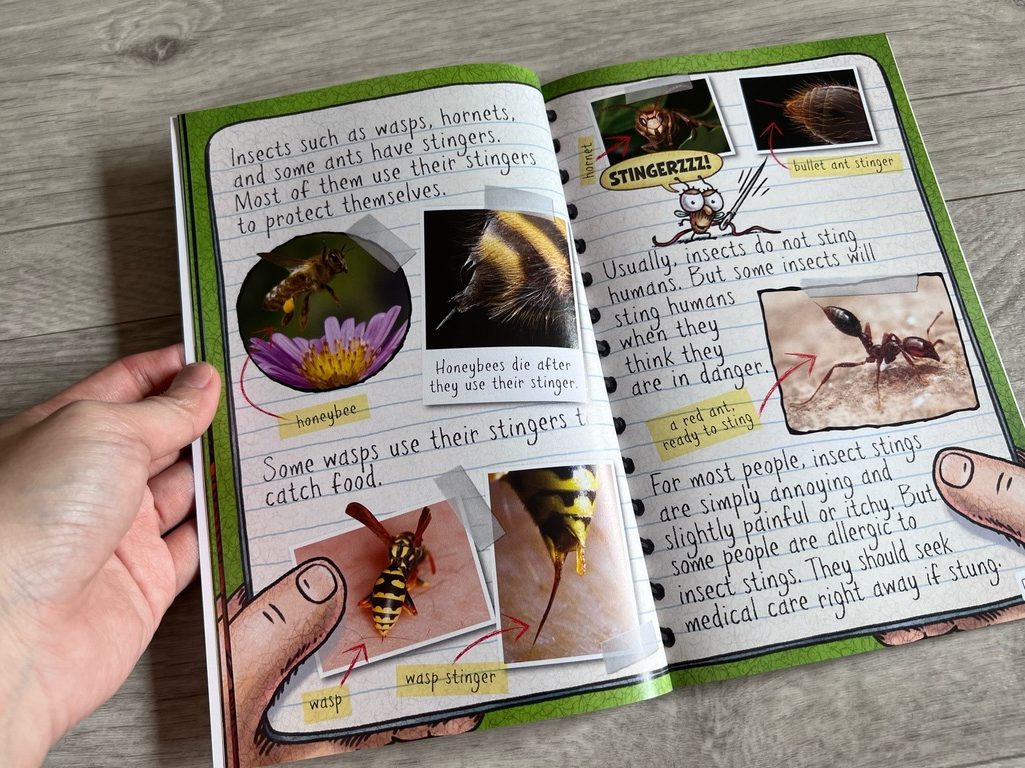 Insects such as wasps, hornets,
and some ants have stingers.
Most of them use their stingers
to protect themselves.
Honeybees die after
they use their stinger.
honeybee
Some wasps use their stingers t
catch food.
wasp
wasp stinger
hornet
bullet ant stinger
STINGERZZZ!
Usually, insects do not sting
humans. But some insects will
sting humans
when they
think they
are in danger.
a red ant,
ready to sting
For most people, insect stings
are simply annoying and
slightly painful or itchy. But
some people are allergic to
insect stings. They should seek
medical care right away if stung.